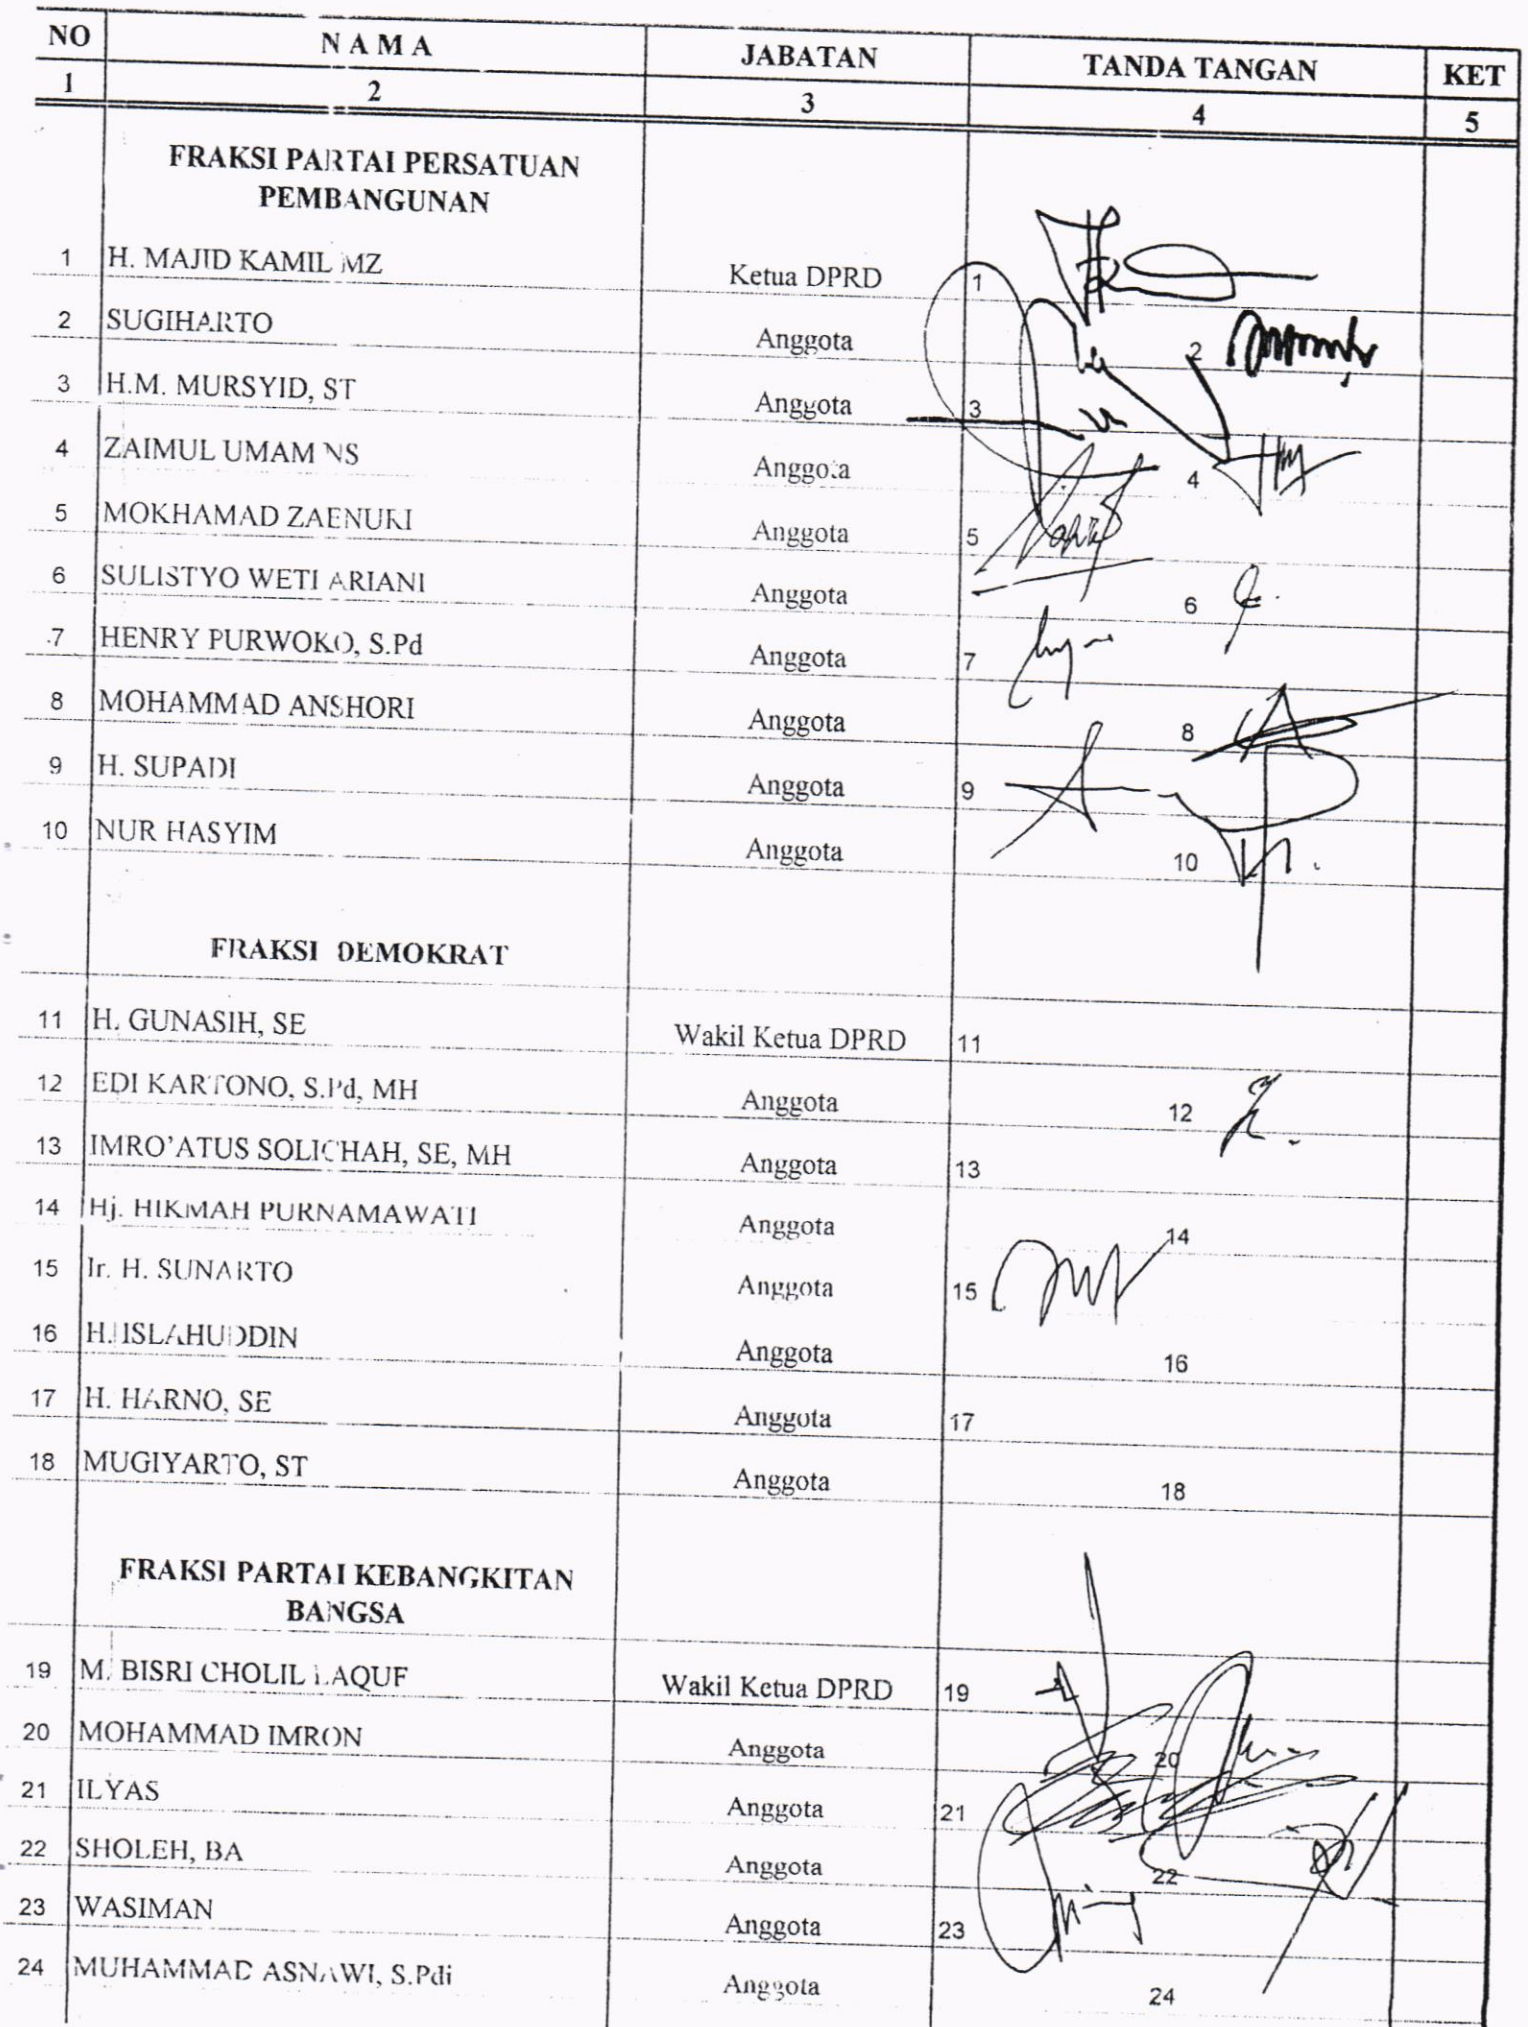 NO NAMA JABATAN TANDA TANGAN KET
1 2 3 4 5
FRAKSI PARTAI PERSATUAN
PEMBANGUNAN
1 H. MAJID KAMIL MZ Ketua DPRD 1
2 SUGIHARTO Anggota 2
3 H.M. MURSYID, ST Anggota 3
4 ZAIMUL UMAM NS Anggota 4
5 MOKHAMAD ZAENURI Anggota 5
6 SULISTYO WETI ARIANI Anggota 6
7 HENRY PURWOKO, S.Pd Anggota 7
8 MOHAMMAD ANSHORI Anggota 8
9 H. SUPADI Anggota 9
10 NUR HASYIM Anggota 10
FRAKSI DEMOKRAT
11 H. GUNASIH, SE Wakil Ketua DPRD 11
12 EDI KARTONO, S.Pd, MH Anggota 12
13 IMRO'ATUS SOLICHAH, SE, MH Anggota 13
14 Hj. HIKMAH PURNAMAWATI Anggota 14
15 Ir. H. SUNARTO Anggota 15
16 H. ISLAHUDDIN Anggota 16
17 H. HARNO, SE Anggota 17
18 MUGIYARTO, ST Anggota 18
FRAKSI PARTAI KEBANGKITAN
BANGSA
19 M. BISRI CHOLIL LAQUF Wakil Ketua DPRD 19
20 MOHAMMAD IMRON Anggota 20
21 ILYAS Anggota 21
22 SHOLEH, BA Anggota 22
23 WASIMAN Anggota 23
24 MUHAMMAD ASNAWI, S.Pdi Anggota 24